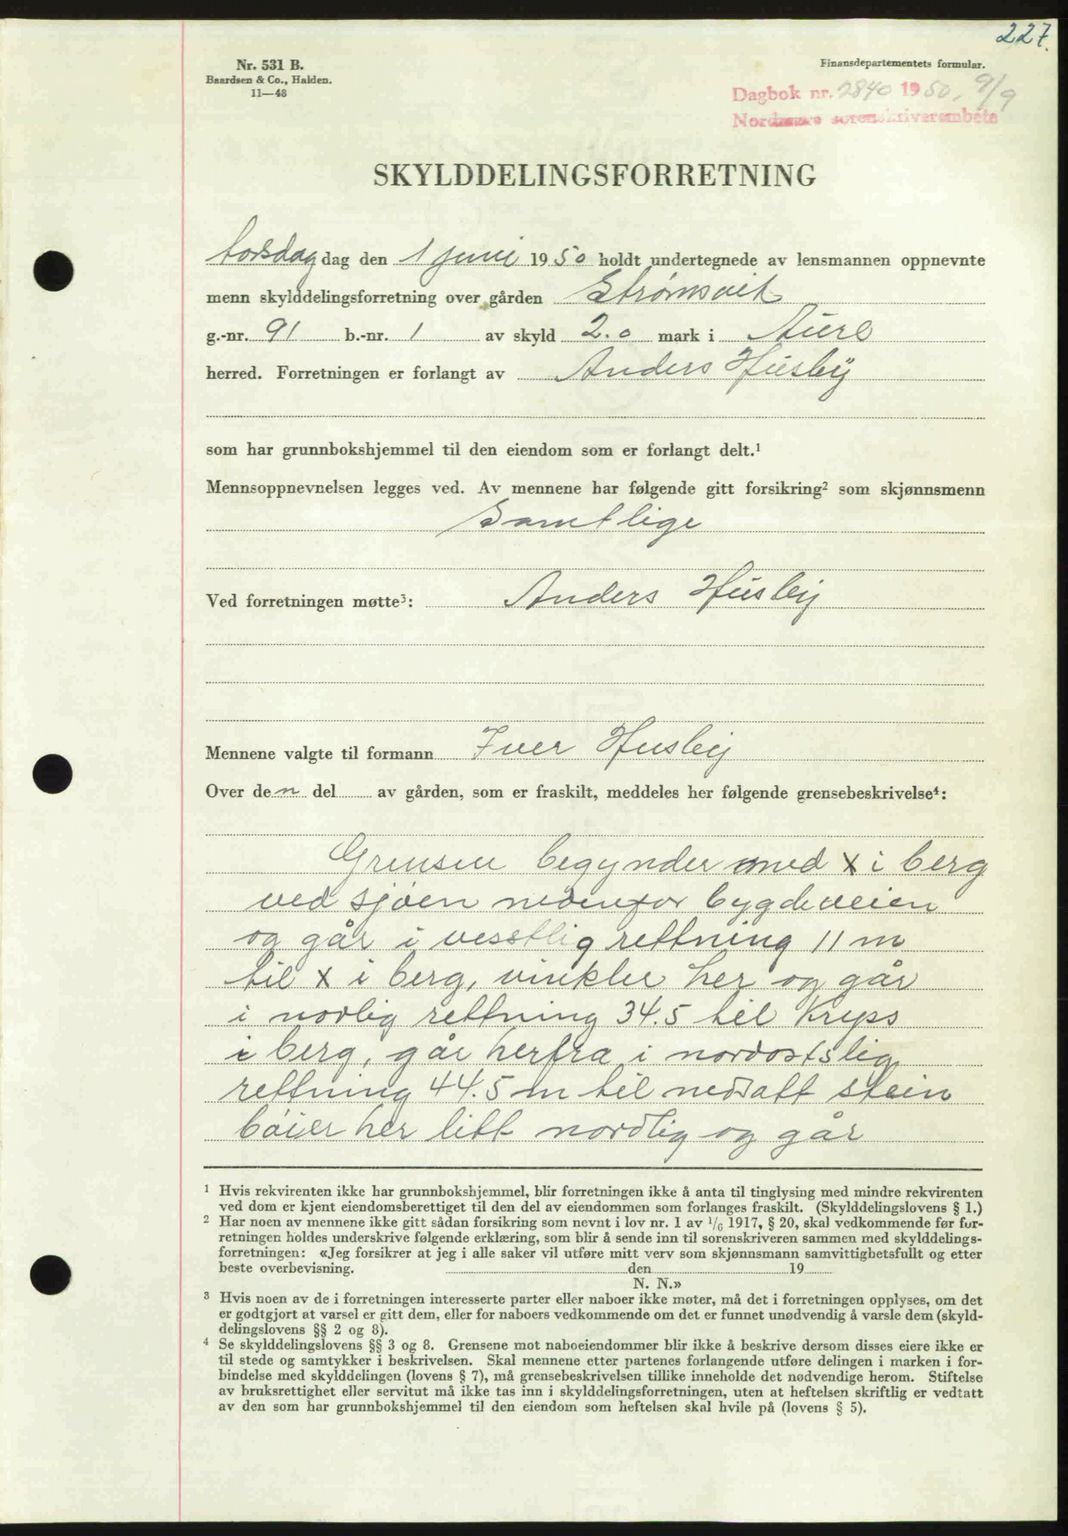 227.
Nr. 531 B.
Baardsen & Co., Halden.
11—48
Finansdepartementets formular.
Dagbok nr. 2840 1950, 9/9
Nordmøre sorenskriverembete
SKYLDDELINGSFORRETNING
torsdag dag den 1 juni 1950 holdt undertegnede av lensmannen oppnevnte
menn skylddelingsforretning over gården Strømsvik
g.-nr. 91 b.-nr. 1 av skyld 2.0 mark i Aure
herred. Forretningen er forlangt av Anders Husby
som har grunnbokshjemmel til den eiendom som er forlangt delt.¹
Mennsoppnevnelsen legges ved. Av mennene har følgende gitt forsikring² som skjønnsmenn
Samtlige
Ved forretningen møtte³: Anders Husby
Mennene valgte til formann Iver Husby
Over den del av gården, som er fraskilt, meddeles her følgende grensebeskrivelse⁴:
Grensen begynder med x i berg
ved sjøen nedenfor bygdeveien
og går i vesstlig rettning 11 m
til x i berg, vinkler her og går
i nordlig rettning 34.5 til Kryss
i berg, går herfra i nordostslig
rettning 44.5 m til nedsatt stein
bøier her litt nordlig og går
¹ Hvis rekvirenten ikke har grunnbokshjemmel, blir forretningen ikke å anta til tinglysing med mindre rekvirenten
ved dom er kjent eiendomsberettiget til den del av eiendommen som forlanges fraskilt. (Skylddelingslovens § 1.)
² Har noen av mennene ikke gitt sådan forsikring som nevnt i lov nr. 1 av 1/6 1917, § 20, skal vedkommende før for-
retningen holdes underskrive følgende erklæring, som blir å sende inn til sorenskriveren sammen med skylddelings-
forretningen: «Jeg forsikrer at jeg i alle saker vil utføre mitt verv som skjønnsmann samvittighetsfullt og etter
beste overbevisning. den 19
N. N.»
³ Hvis noen av de i forretningen interesserte parter eller naboer ikke møter, må det i forretningen opplyses, om det
er godtgjort at varsel er gitt dem, eller for naboers vedkommende om det er funnet unødvendig å varsle dem (skyld-
delingslovens §§ 2 og 8).
⁴ Se skylddelingslovens §§ 3 og 8. Grensene mot naboeiendommer blir ikke å beskrive dersom disses eiere ikke er
til stede og samtykker i beskrivelsen. Skal mennene etter partenes forlangende utføre delingen i marken i for-
bindelse med skylddelingen (lovens § 7), må grensebeskrivelsen tillike inneholde det nødvendige herom. Stiftelse
av bruksrettighet eller servitut må ikke tas inn i skylddelingsforretningen, uten at heftelsen skriftlig er vedtatt
av den som har grunnbokshjemmel til den eiendom som heftelsen skal hvile på (lovens § 5).